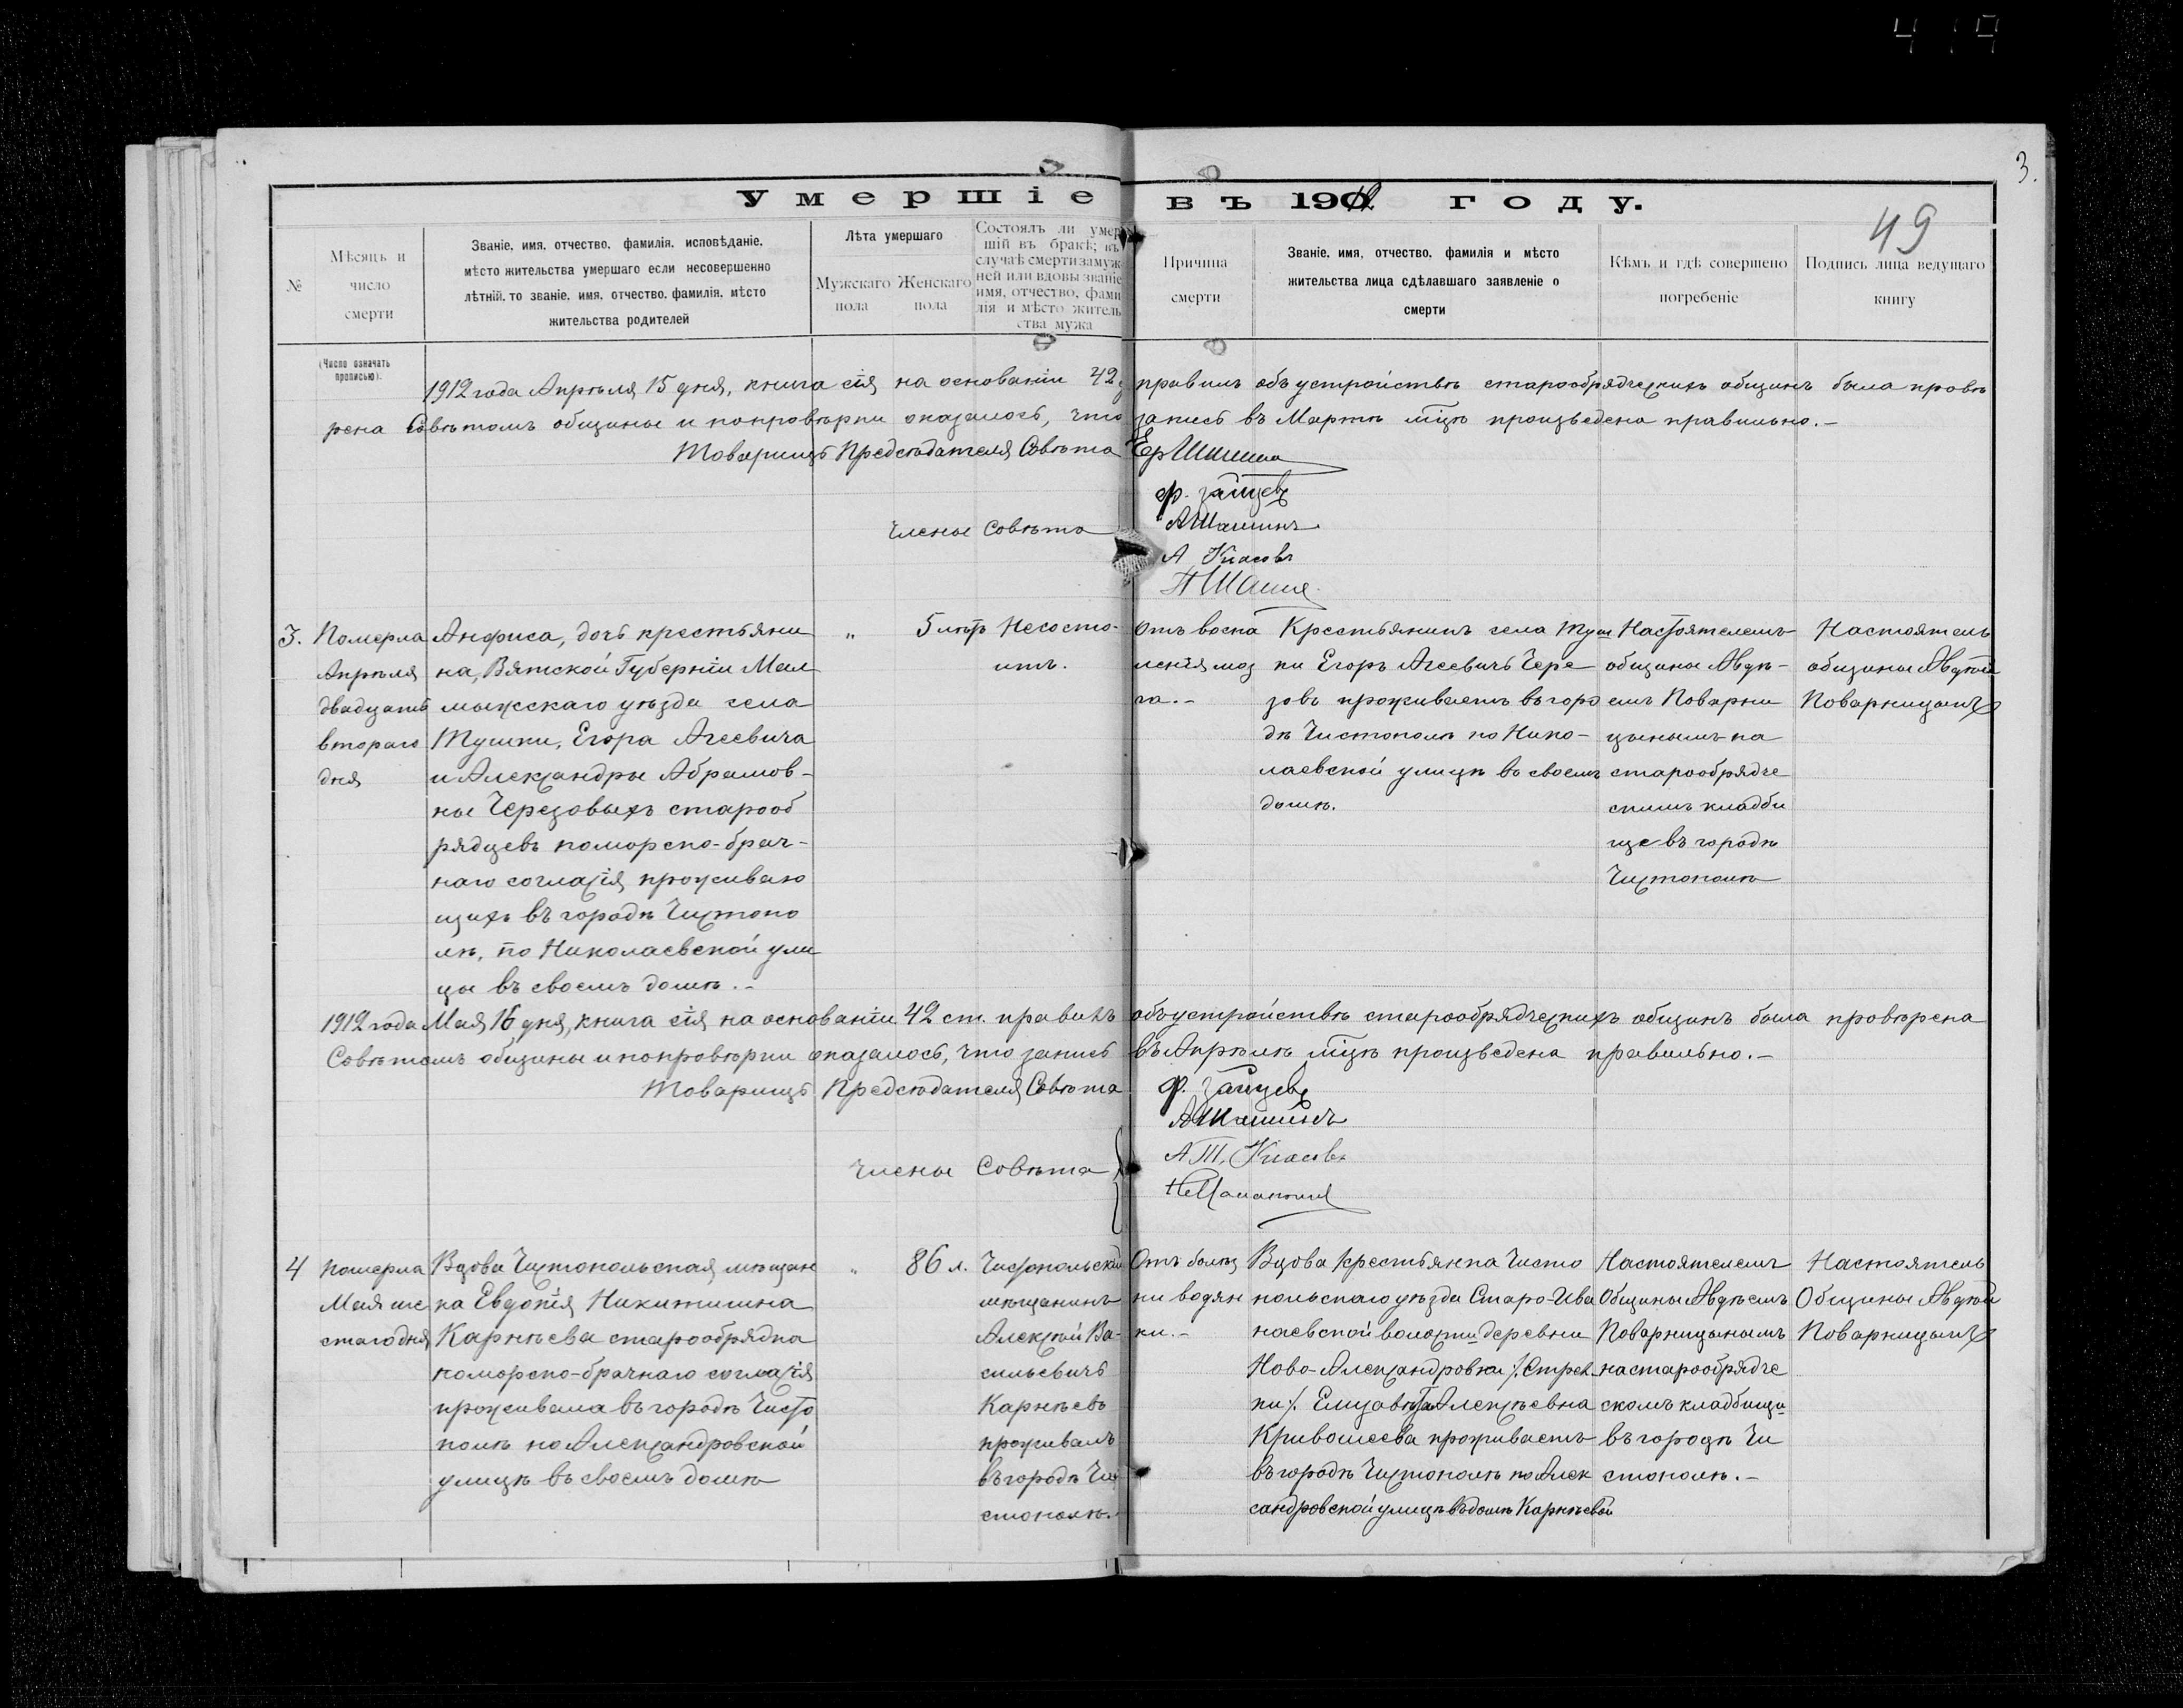 3.
49
Умершіе въ 1912 году.
№
Мѣсяцъ и
число
смерти
Званіе, имя, отчество, фамилія, исповѣданіе,
мѣсто жительства умершаго если несовершенно
лѣтній, то званіе, имя, отчество, фамилія, мѣсто
жительства родителей
Лѣта умершаго
Мужскаго
пола
Женскаго
пола
Состоялъ ли умер
шій въ бракѣ; въ
случаѣ смерти замуж
ней или вдовы званіе
имя, отчество, фами
лія и мѣсто житель
ства мужа
Причина
смерти
Званіе, имя, отчество, фамилія и мѣсто
жительства лица сдѣлавшаго заявленіе о
смерти
Кѣмъ и гдѣ совершено
погребеніе
Подпись лица ведущаго
книгу
(Число означать
прописью).
1912 года Апрѣля 15 дня, книга сія на основаніи 42 правилъ объ устройствѣ старообрядческихъ общинъ была провѣ
рена Совѣтомъ общины и попровѣрки оказалось, что запись въ Мартѣ мѣцѣ произведена правильно.-
Товарищъ Предсѣдателя Совѣта
Ф. Зайцевъ
Члены Совѣта
АШашинъ
А
3.
Померла
Апрѣля
двадцать
втораго
дня
Анфиса, дочь крестьяни
на, Вятской Губерніи Мал
мыжскаго уѣзда села
Тушки, Егора Агеевича
и Александры Абрамов-
ны Черезовыхъ старооб
рядцевъ поморско-брач-
наго согласія, проживаю
щихъ въ городѣ Чистопо
лѣ, по Николаевской ули
цы въ своемъ домѣ.-
"
5 лѣтъ
Несосто-
итъ.
Отъ воспа
ленія моз
га.-
Крестьянинъ села Туш
ки Егоръ Агеевичъ Чере
зовъ проживаетъ въ горо
дѣ Чистополѣ по Нико-
лаевской улицѣ въ своемъ
домѣ.
Настоятелемъ
общины Авдѣ-
емъ Поварни
цынымъ на
старообрядче
скимъ кладби
ще въ городѣ
Чистополѣ
Настоятель
общины Авдѣй
Поварницынъ
1912 года Мая 16 дня, книга сія на основаніи 42 ст. правилъ объ устройствѣ старообрядческихъ общинъ была провѣрена
Совѣтомъ общины и попровѣрки оказалось, что запись въ Апрѣлѣ мѣцѣ произведена правильно.-
Товарищъ Предсѣдателя Совѣта
Ф. Зайцевъ
АШашинъ
Члены Совѣта
А.Т.
4
Померла
Мая ше
стаго дня
Вдова Чистопольская мѣщан
ка Евдокія Никитишна
Карнѣева старообрядка
поморско-брачнаго согласія
проживала въ городѣ Чисто
полѣ по Александровской
улицѣ въ своемъ домѣ
"
86 л.
Чистопольскій
мѣщанинъ
Алексѣй Ва-
сильевичъ
Карнѣевъ
проживалъ
въ городѣ Чи
стополѣ.
Отъ болѣз
ни водян
ки.-
Вдова крестьянка Чисто
польскаго уѣзда Старо-Ива
наевской волости деревни
Ново-Александровки /.Стрел
ки/. Елизавета Алексѣевна
Кривошеева проживаетъ
въ городѣ Чистополѣ по Алек
сандровской улицѣ въ домѣ Карнѣевой
Настоятелемъ
Общины Авдѣемъ
Поварницынымъ
на старообрядче
скомъ кладбище
въ городѣ Чи
стополѣ.-
Настоятель
Общины Авдѣй
Поварницынъ